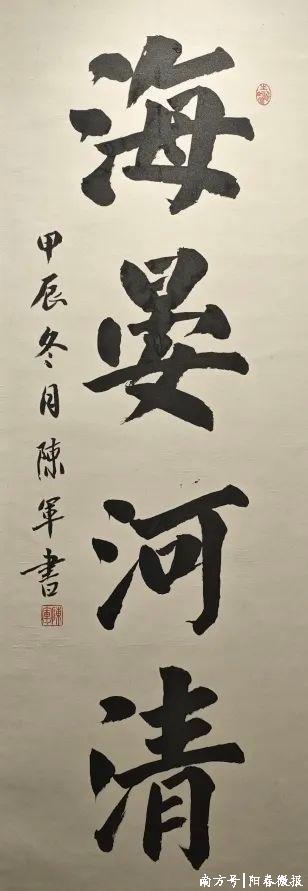 海晏河清
甲辰冬月陳軍書
南方号|阳春微报